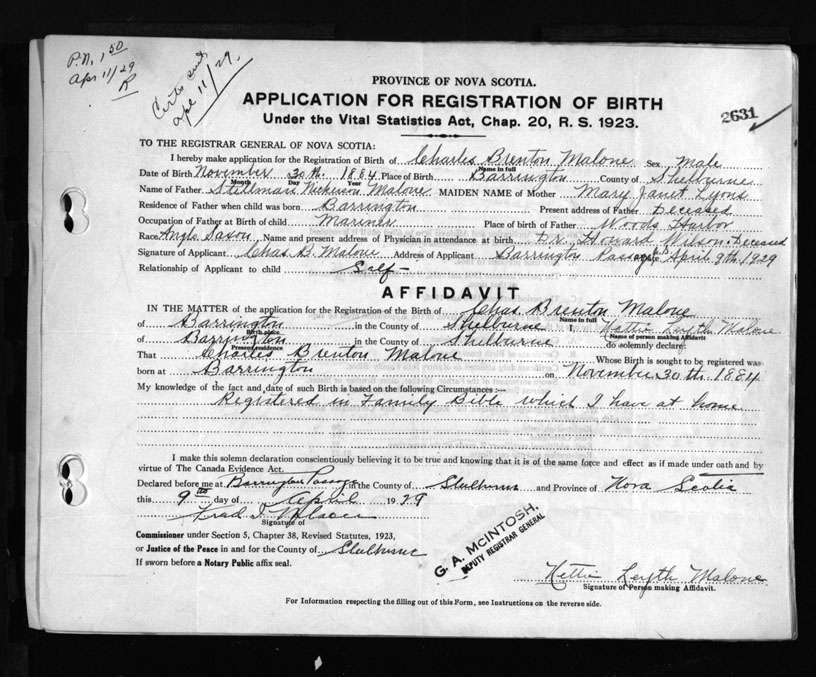 P.N. 1 50
Apr 11/29
R
Certs sent
Apr 11/29.
2631
PROVINCE OF NOVA SCOTIA.
APPLICATION FOR REGISTRATION OF BIRTH
Under the Vital Statistics Act, Chap. 20, R. S. 1923.
TO THE REGISTRAR GENERAL OF NOVA SCOTIA:
I hereby make application for the Registration of Birth of Charles Brenton Malone Sex Male
Name in full
Date of Birth November 30th 1884 Place of Birth Barrington County of Shelburne
Month Day Year
Name of Father Stillman Nickerson Malone MAIDEN NAME of Mother Mary Janet Lyons
Residence of Father when child was born Barrington Present address of Father Deceased
Occupation of Father at Birth of child Mariner Place of birth of Father Woods Harbor
Race Anglo Saxon Name and present address of Physician in attendance at birth Dr. Howard Wilson: Deceased
Signature of Applicant Chas B. Malone Address of Applicant Barrington Passage Date April 9th 1929
Relationship of Applicant to child Self-
AFFIDAVIT
IN THE MATTER of the application for the Registration of the Birth of Chas Brenton Malone
Name in full
of Barrington in the County of Shelburne I, Hattie Malone
Birth place
Name of person making Affidavit
of Barrington in the County of Shelburne do solemnly declare:
Present residence
That Charles Brenton Malone Whose Birth is sought to be registered was
born at Barrington on November 30th 1884
My knowledge of the fact and date of such Birth is based on the following Circumstances :—
Registered in Family Bible which I have at home
I make this solemn declaration conscientiously believing it to be true and knowing that it is of the same force and effect as if made under oath and by
virtue of The Canada Evidence Act.
Declared before me at Barrington Passage in the County of Shelburne and Province of Nova Scotia
this 9th day of April 1929
Signature of
Commissioner under Section 5, Chapter 38, Revised Statutes, 1923,
or Justice of the Peace in and for the County of Shelburne
If sworn before a Notary Public affix seal.
G. A. McINTOSH,
DEPUTY REGISTRAR GENERAL
Malone
Signature of Person making Affidavit.
For Information respecting the filling out of this Form, see Instructions on the reverse side.